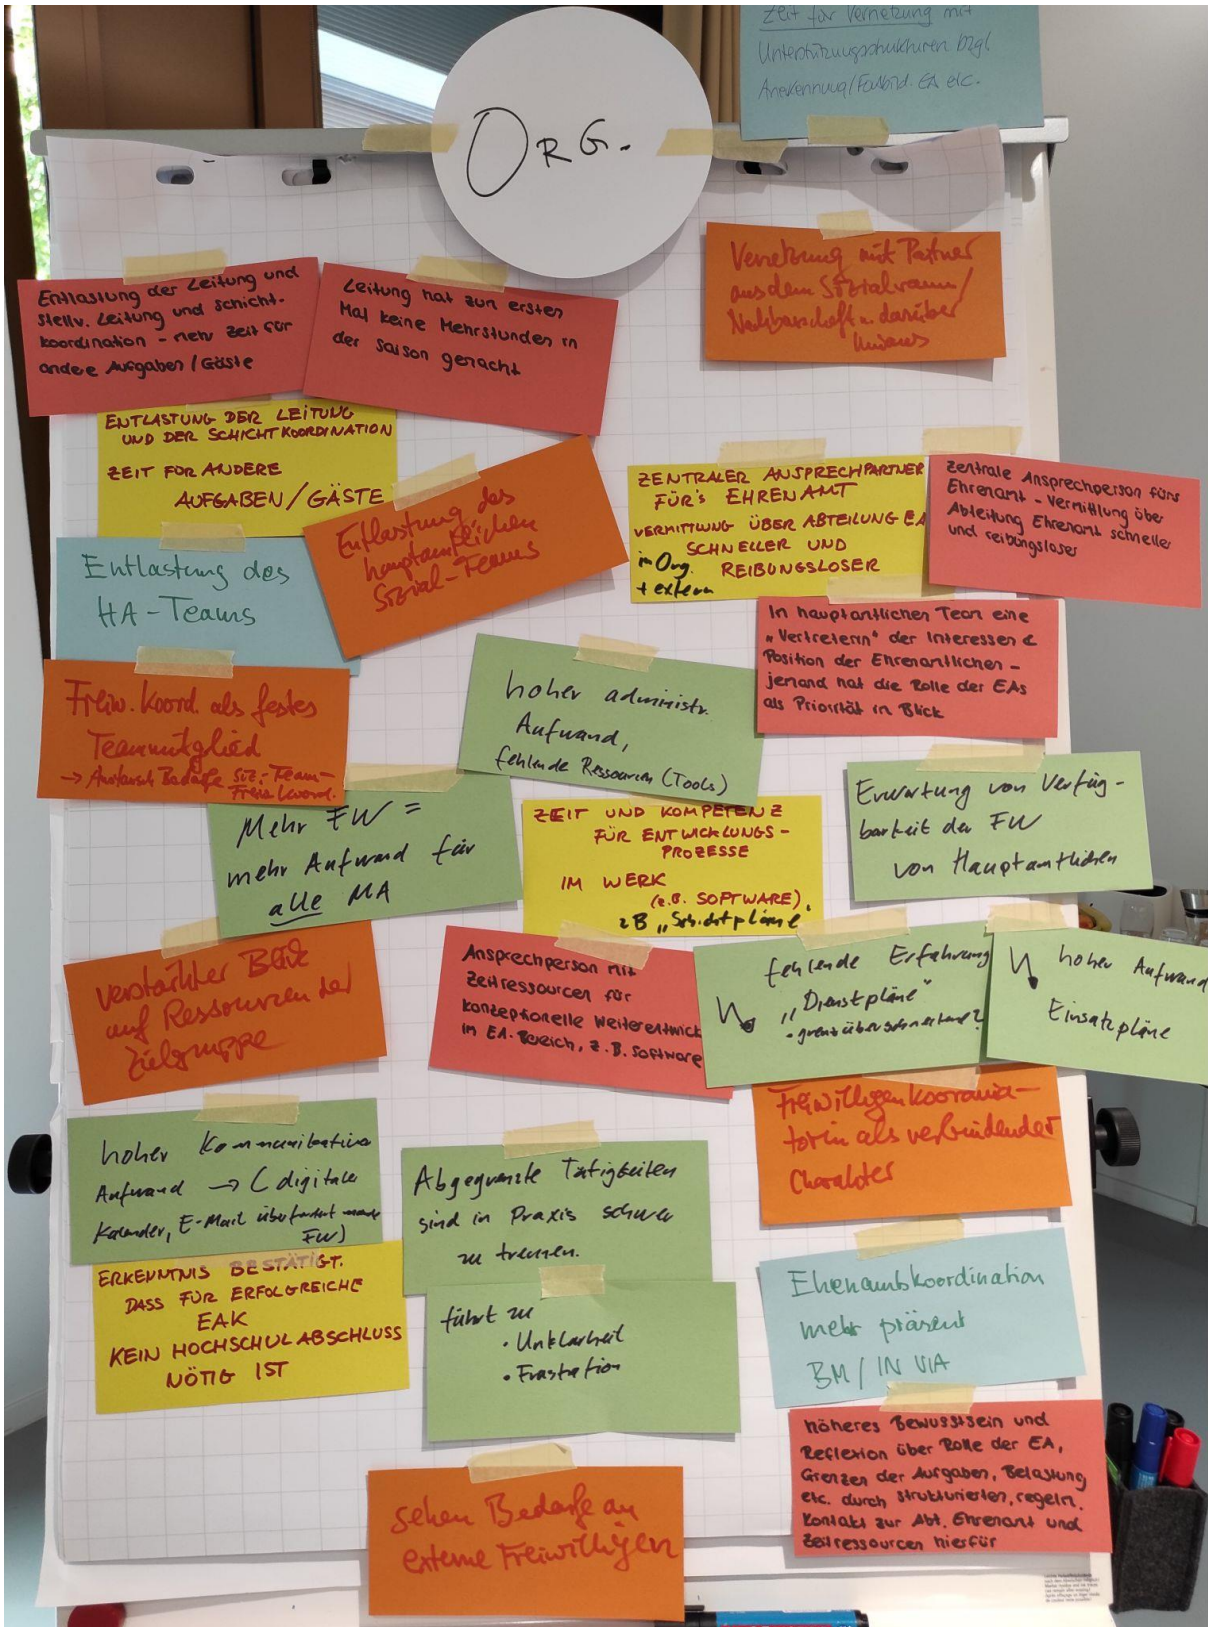 Zeit für Vernetzung mit
Unterstützungsstrukturen bzgl
Anerkennung/Fortbild. EA etc.
ORG.
Vernetzung mit Partner
aus dem Sozialraum/
Nachbarschaft u. darüber
hinaus
Entlastung der Leitung und
stellv. Leitung und schicht-
koordination - mehr Zeit für
andere Aufgaben / Gäste
Leitung hat zum ersten
Mal keine Mehrstunden in
der Saison gemacht
ENTLASTUNG DER LEITUNG
UND DER SCHICHTKOORDINATION
ZEIT FÜR ANDERE
AUFGABEN/GÄSTE
Entlastung des
hauptamtlichen
Sozial-Teams
ZENTRALER ANSPRECHPARTNER
FÜR'S EHRENAMT
VERMITTLUNG ÜBER ABTEILUNG EA
SCHNELLER UND
REIBUNGSLOSER
in Org.
+ extern
Zentrale Ansprechperson fürs
Ehrenamt - Vermittlung über
Abteilung Ehrenamt schneller
und reibungsloser
Entlastung des
HA-Teams
In hauptamtlichen Team eine
"Vertreterin" der Interessen &
Position der Ehrenamtlichen -
jemand hat die Rolle der EAs
als Priorität im Blick
Freiw. Koord. als festes
Teammitglied
→ Austausch Bedarfe Soz.-Team-
Freiw. Koord.
hoher administr.
Aufwand,
fehlende Ressourcen (Tools)
Mehr FW =
mehr Aufwand für
alle MA
ZEIT UND KOMPETENZ
FÜR ENTWICKLUNGS-
PROZESSE
IM WERK
(z.B. SOFTWARE),
z B „Schichtpläne"
Erwartung von Verfüg-
barkeit der FW
von Hauptamtlichen
verstärkter Blick
auf Ressourcen der
Zielgruppe
Ansprechperson mit
Zeitressourcen für
konzeptionelle Weiterentwick
im EA-Bereich, z.B. Software
fehlende Erfahrung
„Dienstpläne"
hoher Aufwand
Einsatzpläne
Freiwilligenkoordina-
torin als verbindender
Charakter
hoher Kommunikativer
Aufwand → (digitaler
Kalender, E-Mail überfordert manche
FW)
Abgegrenzte Tätigkeiten
sind in Praxis schwer
zu trennen.
ERKENNTNIS BESTÄTIGT.
DASS FÜR ERFOLGREICHE
EAK
KEIN HOCHSCHULABSCHLUSS
NÖTIG IST
führt zu
• Unklarheit
• Frustration
Ehrenamtskoordination
mehr präsent
BM / IN VIA
höheres Bewusstsein und
Reflexion über Rolle der EA,
Grenzen der Aufgaben, Belastung
etc. durch strukturierten, regelm.
Kontakt zur Abt. Ehrenamt und
Zeitressourcen hierfür
sehen Bedarfe an
externe Freiwilligen